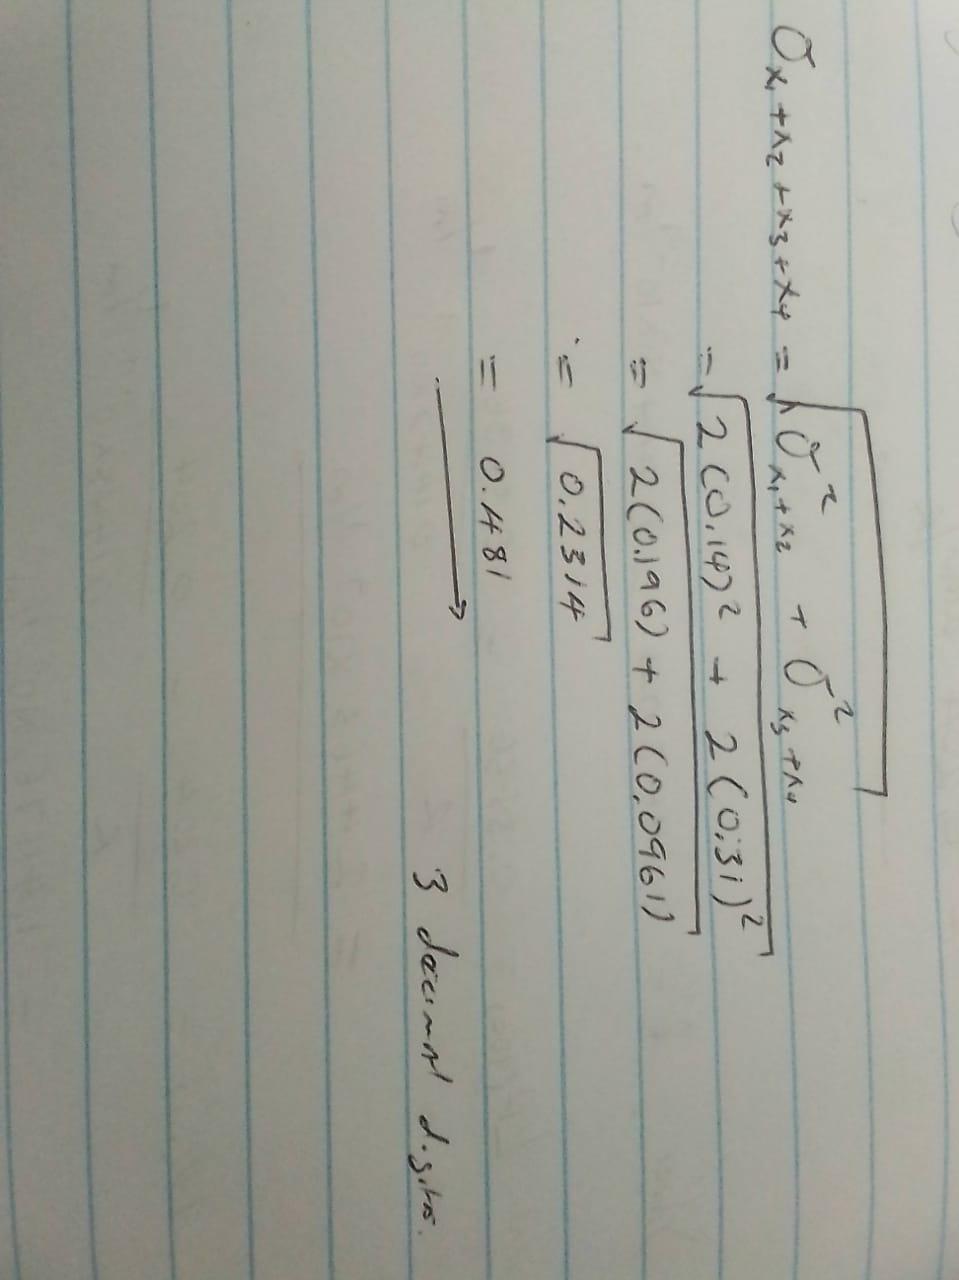 σ_{x₁+x₂+x₃+x₄} = √(σ²_{x₁+x₂} + σ²_{x₃+x₄})
= √(2(0.14)² + 2(0.31)²)
= √(2(0.196) + 2(0.0961))
= √0.2314
= 0.481
→ 3 decimal digits.